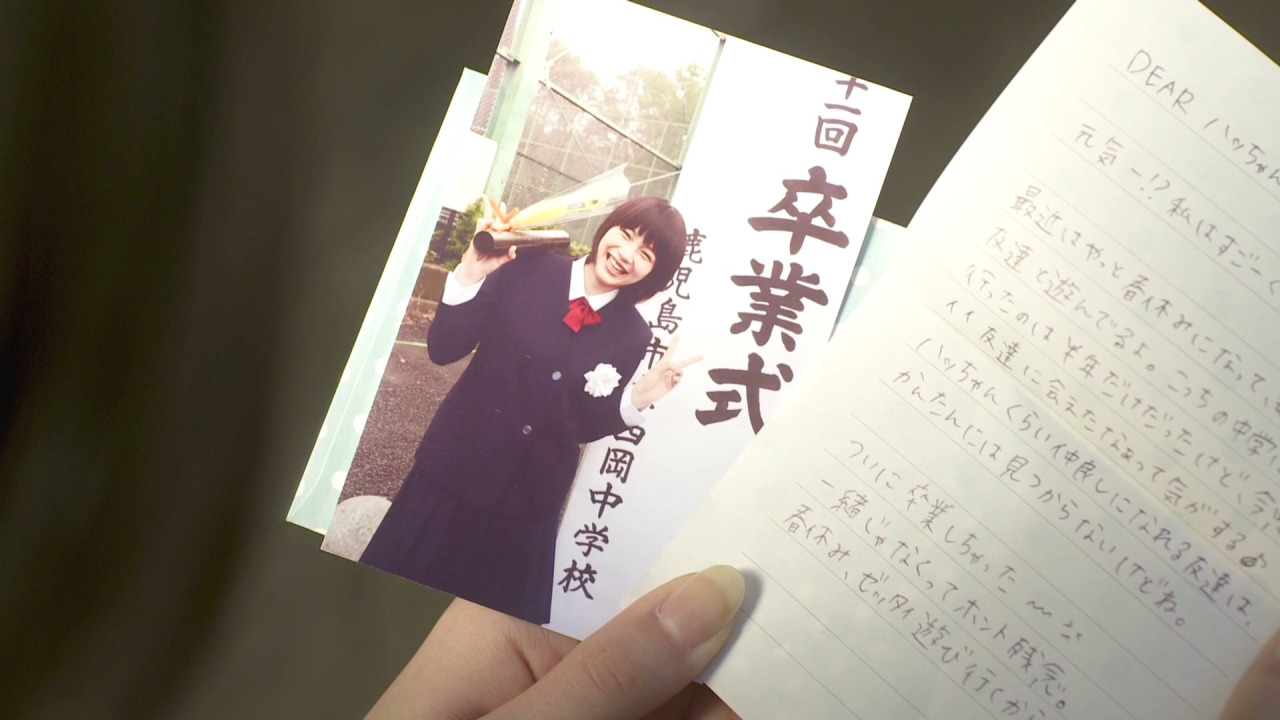 十一回
卒業式
鹿児島市
西岡中学校
DEAR ハッちゃん
元気ー!? 私はすごーく
最近はやっと春休みになって、
友達と遊んでるよ。こっちの中学
行ったのは半年だけだったけど、
イイ友達に会えたなあって気がする♪
ハッちゃんくらい仲良しになれる友達は、
かんたんには見つからないけどね。
ついに卒業しちゃった 〜
一緒じゃなくってホント残念。
春休み、ゼッタイ遊び行くから